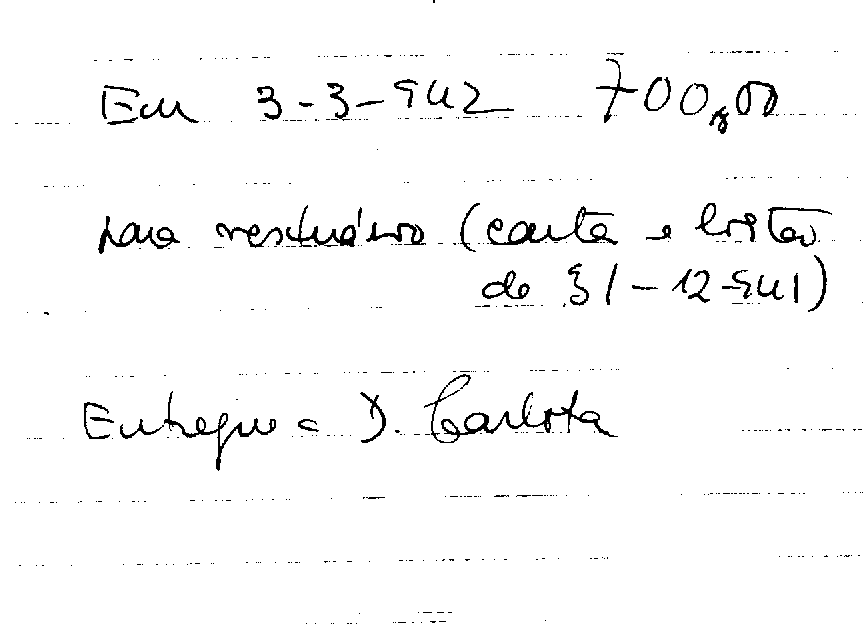 Em 3-3-942 700,00
para vestuário (carta e cartão
de 31-12-941)
Entregue a D. Carlota